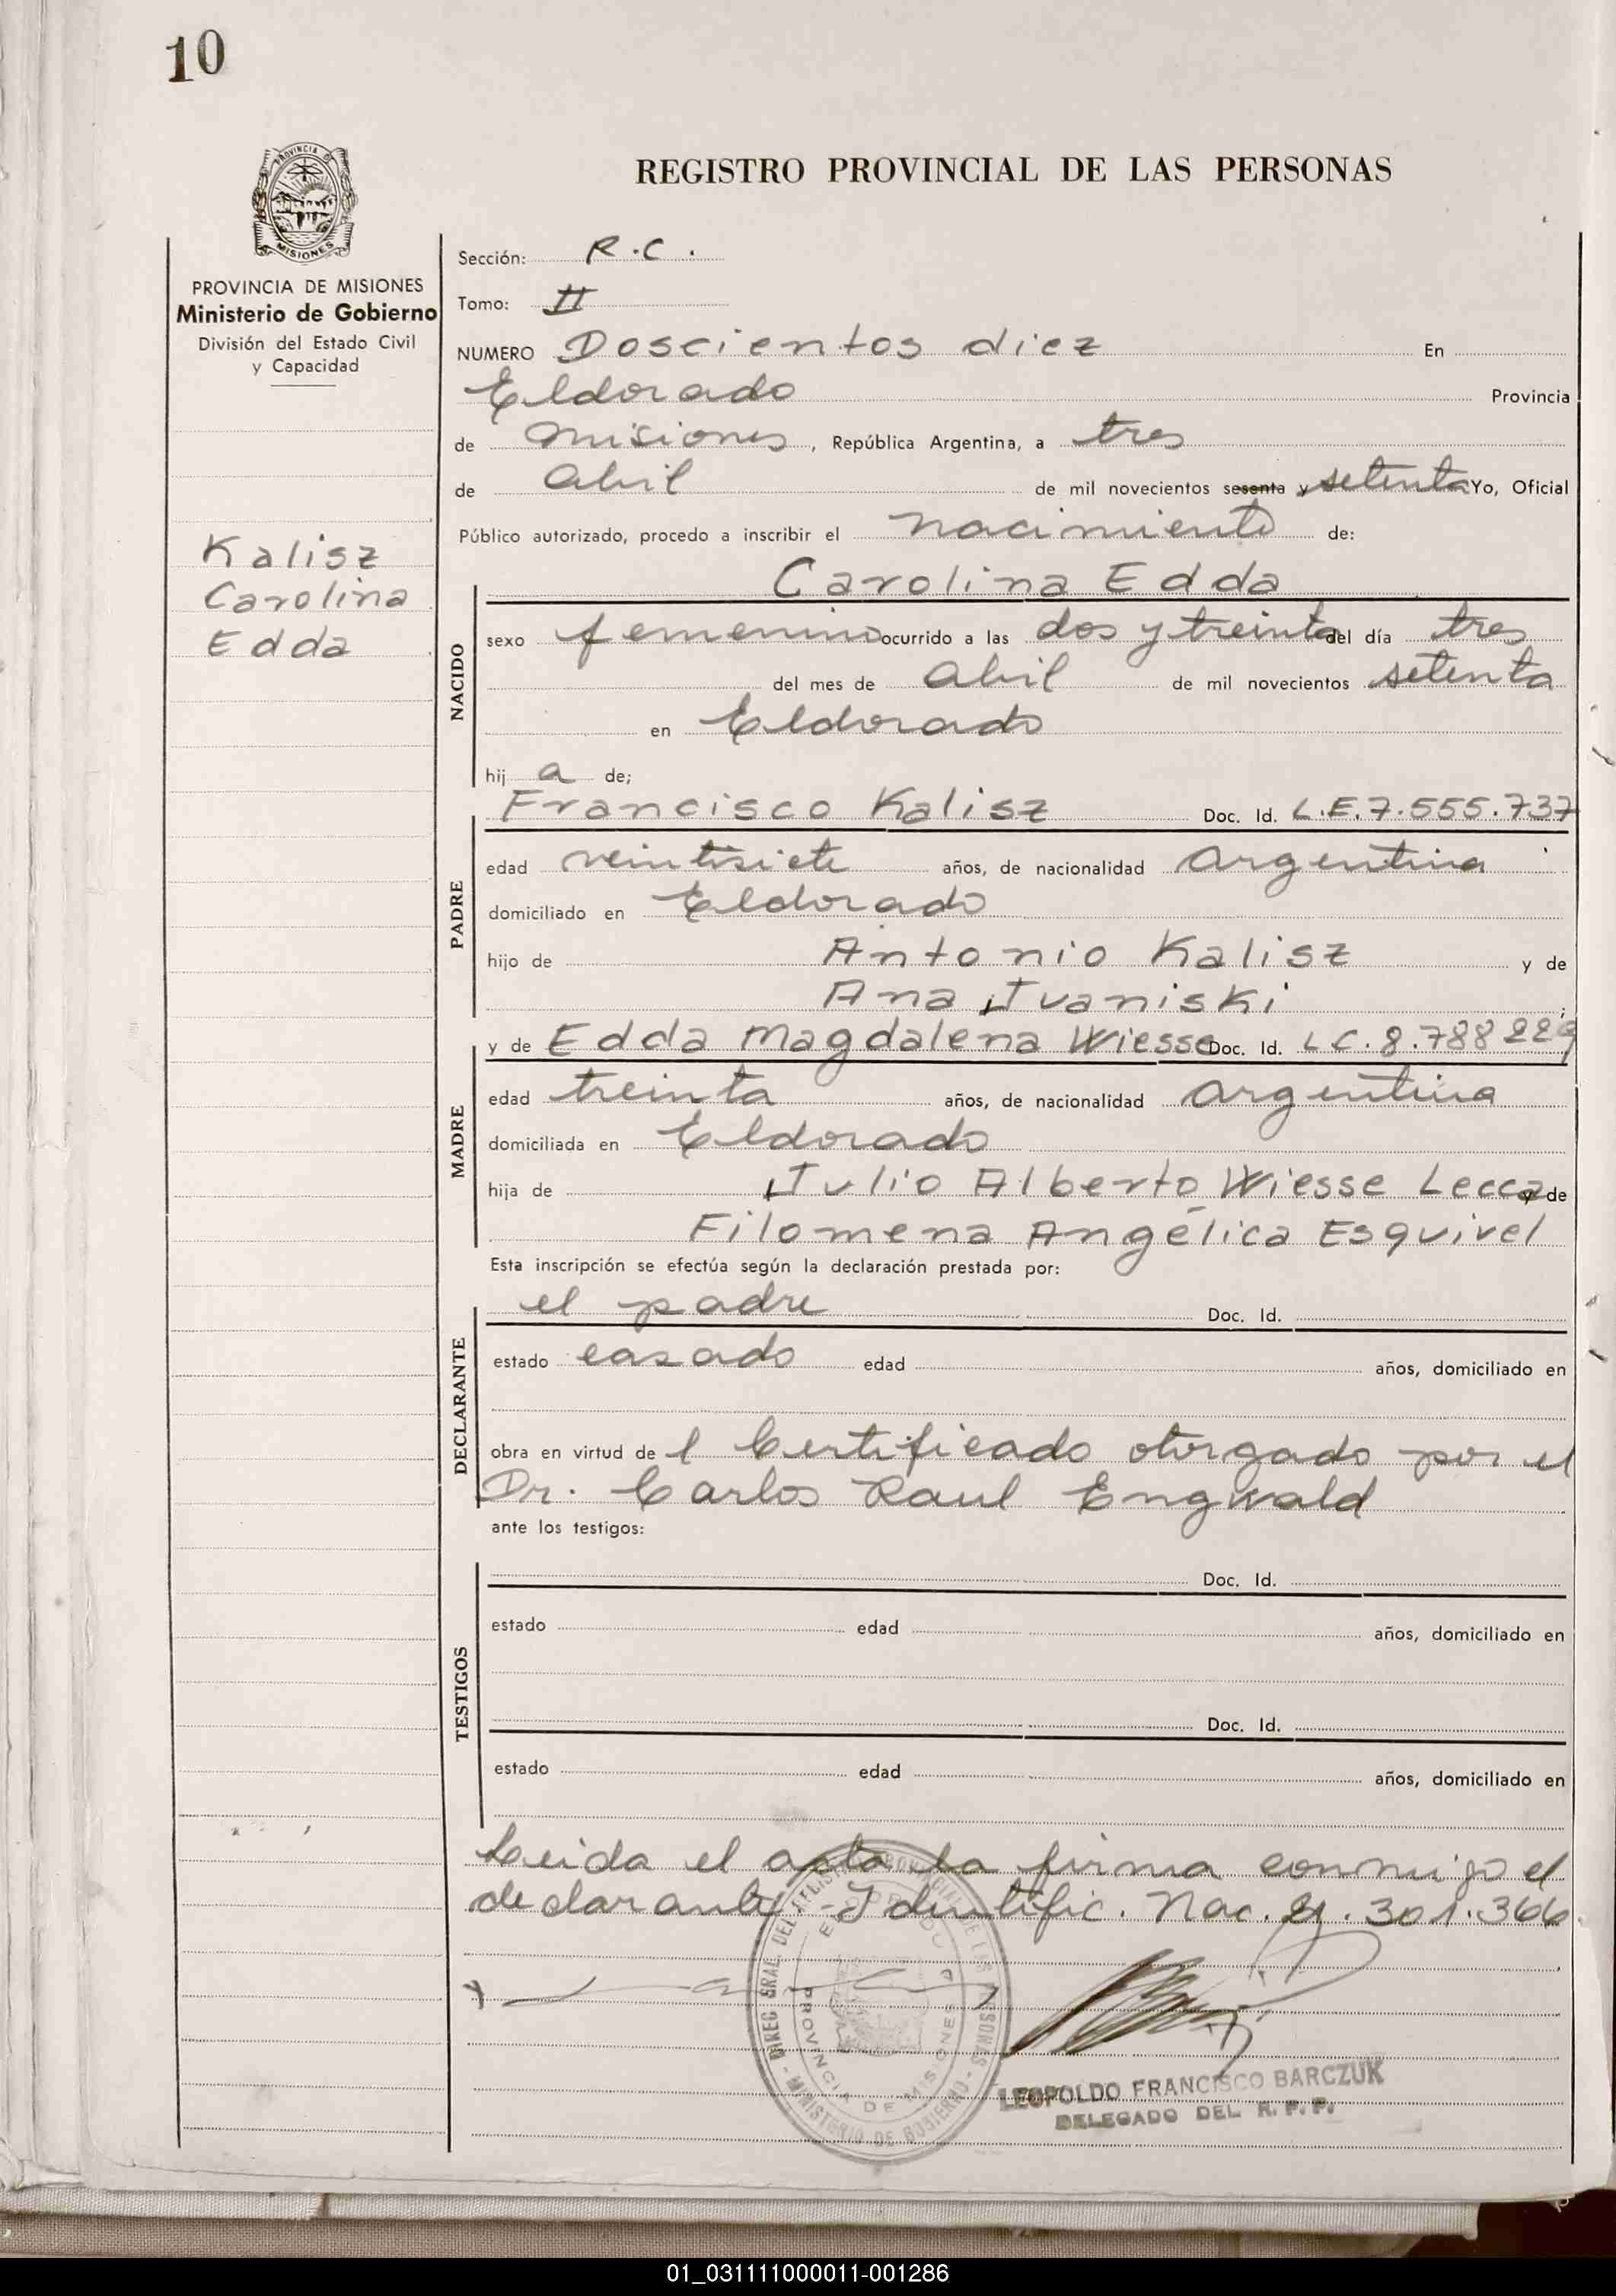 10
PROVINCIA DE
MISIONES
REGISTRO PROVINCIAL DE LAS PERSONAS
PROVINCIA DE MISIONES
Ministerio de Gobierno
División del Estado Civil
y Capacidad
Kalisz
Carolina
Edda
Sección: R.C.
Tomo: II
NUMERO Doscientos diez En
Eldorado Provincia
de Misiones, República Argentina, a tres
de Abril de mil novecientos sesenta y setenta Yo, Oficial
Público autorizado, procedo a inscribir el nacimiento de:
Carolina Edda
NACIDO
sexo femenino ocurrido a las dos y treinta del día tres
del mes de Abril de mil novecientos setenta
en Eldorado
hij a de;
Francisco Kalisz Doc. Id. L.E. 7.555.737
PADRE
edad veintisiete años, de nacionalidad argentina
domiciliado en Eldorado
hijo de Antonio Kalisz y de
Ana Ivaniski
y de Edda Magdalena Wiesse Doc. Id. LC. 8.788229
MADRE
edad treinta años, de nacionalidad argentina
domiciliada en Eldorado
hija de Julio Alberto Wiesse Lecca y de
Filomena Angélica Esquivel
Esta inscripción se efectúa según la declaración prestada por:
el padre Doc. Id.
DECLARANTE
estado casado edad años, domiciliado en
obra en virtud de l Certificado otorgado por el
Dr. Carlos Raul Engwald
ante los testigos:
Doc. Id.
TESTIGOS
estado edad años, domiciliado en
Doc. Id.
estado edad años, domiciliado en
Leida el acta la firma conmigo el
declarante - Identific. Nac. 21.301.366
DIREC. GRAL. DEL REGISTRO PROVINCIAL DE LAS PERSONAS - MINISTERIO DE GOBIERNO -
ELDORADO
PROVINCIA DE MISIONES
LEOPOLDO FRANCISCO BARCZUK
DELEGADO DEL R. P. P.
01_031111000011-001286